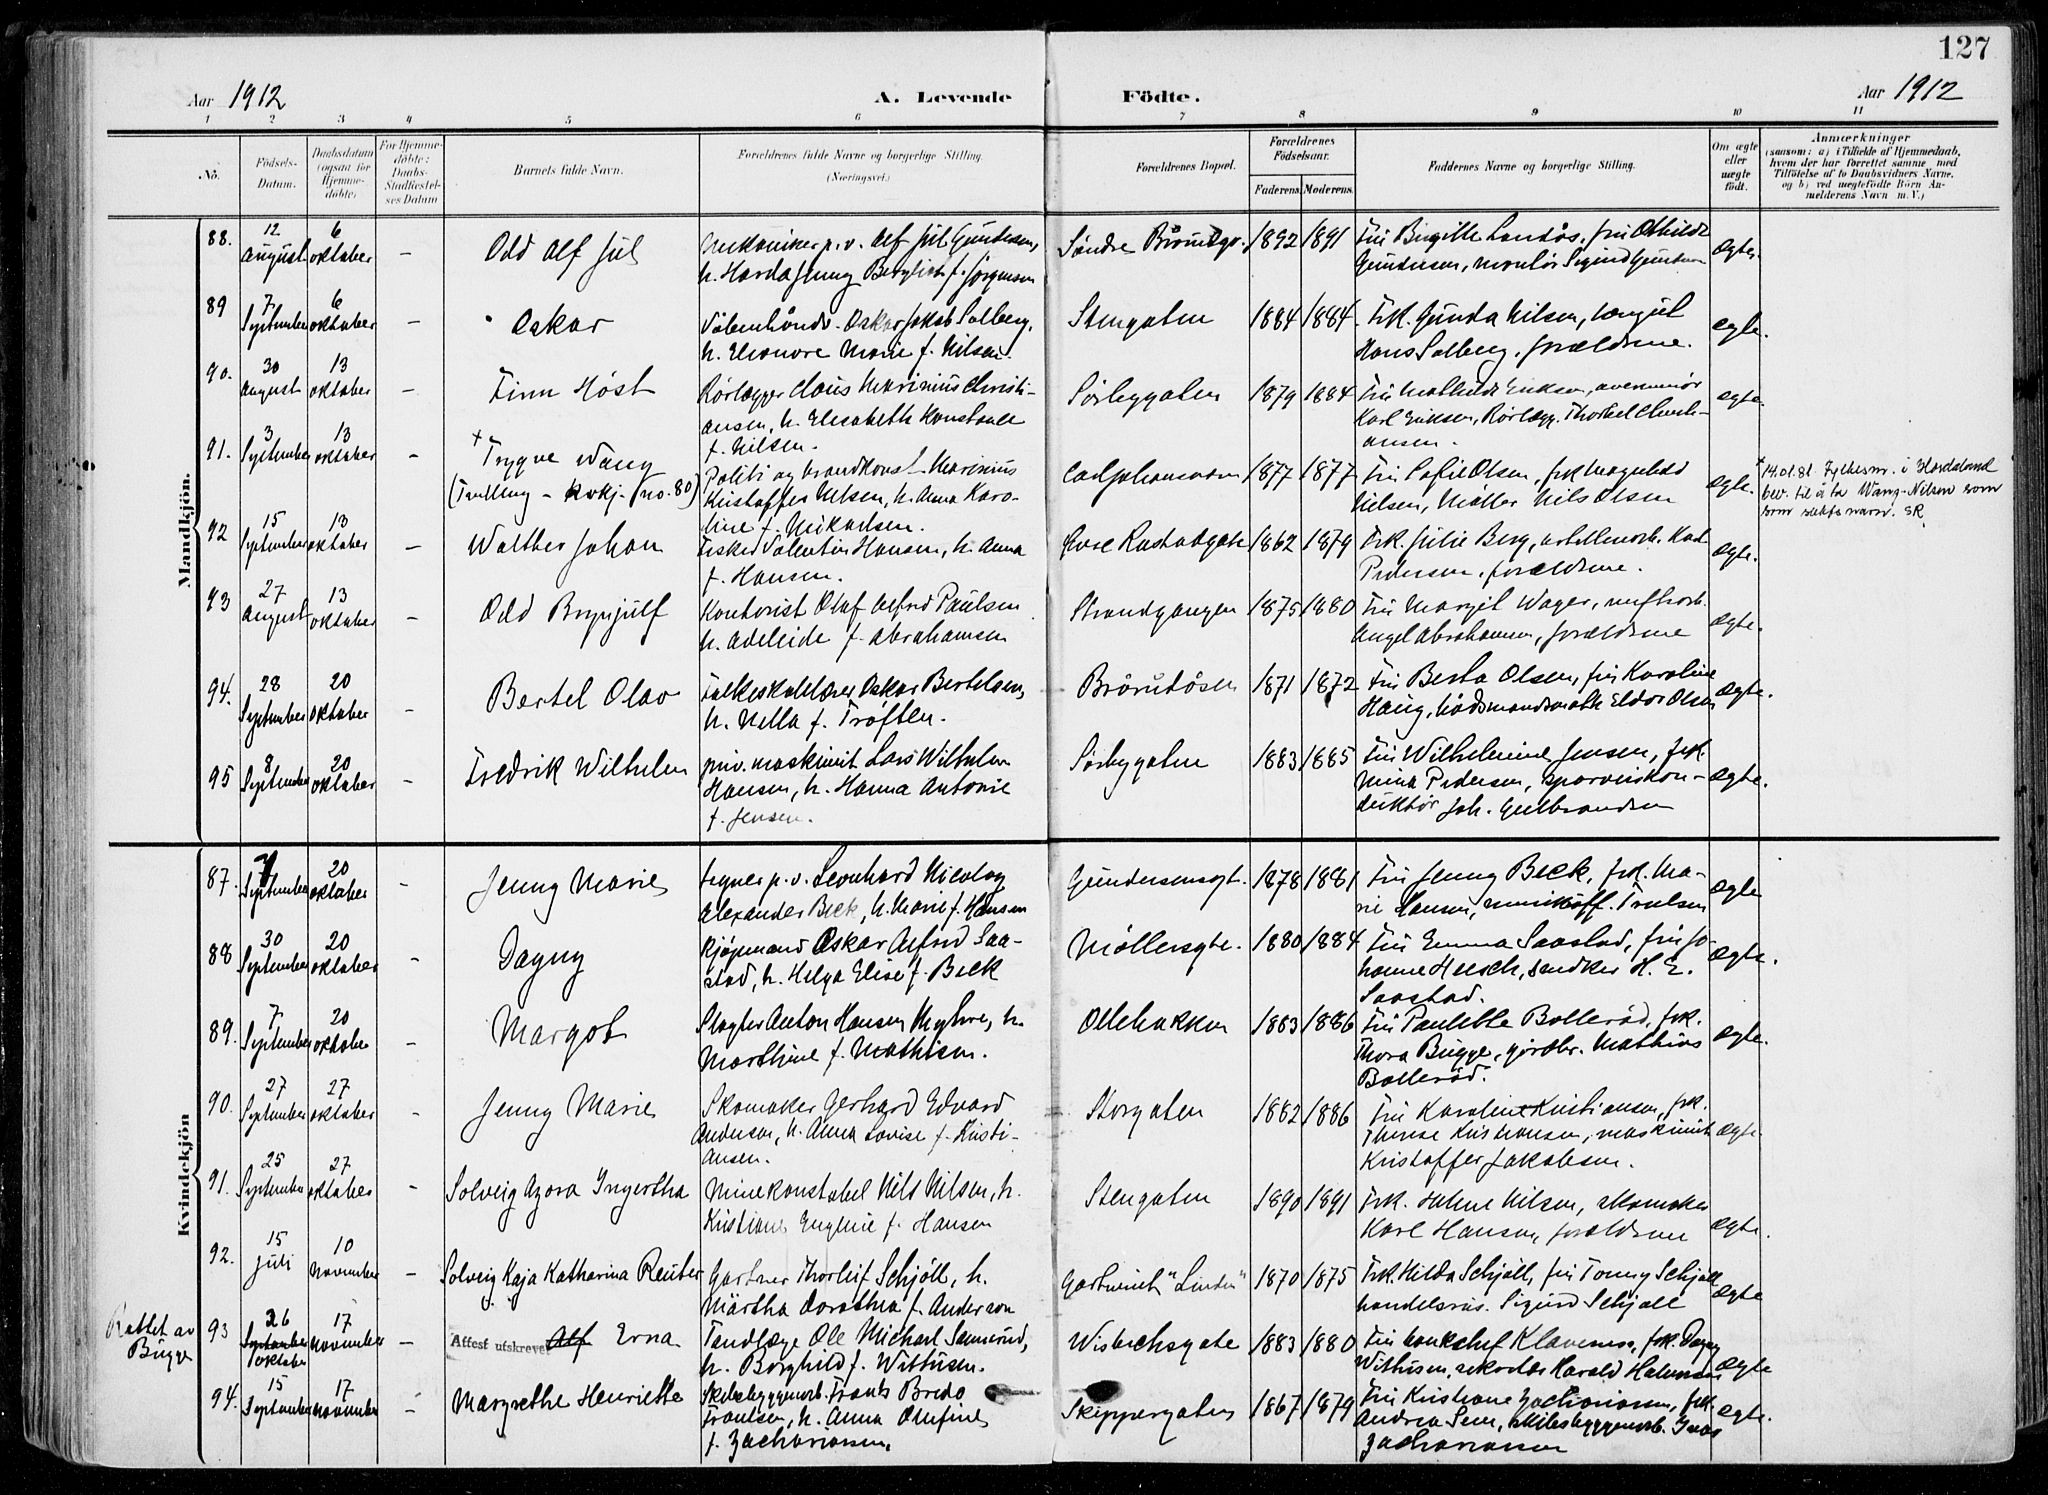 127
Aar 1912
A. Levende Fødte.
Aar 1912
1 2 3 4 5 6 7 8 9 10 11
No.
Födsels-Datum.
Daabsdatum (ogsaa for Hjemme-döbte)
For Hjemme-döbte: Daabs-Stadfæstel-ses Datum
Barnets fulde Navn.
Forældrenes fulde Navne og borgerlige Stilling. (Næringsvei.)
Forældrenes Bopæl.
Forældrenes Födselsaar.
Faderens. Moderens.
Faddernes Navne og borgerlige Stilling.
Om ægte eller uægte födt.
Anmærkninger
(saasom: a) i Tilfælde af Hjemmedaab, hvem der har forrettet samme, med Tilföielse af to Daabsvidners Navne, og b) ved uægtefödte Börn An-melderens Navn m. V.)
Mandkjön.
88. 12 August 6 oktober Odd Alf Jul
p. v. Alf Jul Gundersen,
f. Jørgensen
Søndre 1892 1891
Fru Birgitte fru Othilde
Gundersen, montør Sigurd ægte.
89 7 September 6 oktober – Oskar
Oskar Jakob Solberg,
h. Eleonore Marie f. Nilsen.
Stengaten 1884 1884
Frk. Gunda Nilsen,
Hans Solberg, forældrene. ægte.
90. 30 August 13 oktober – Finn Høst
Rørlægger Claus Marinius Christi-
ansen, h. Elisabeth Konstanse
f. Nilsen.
Sørbygaten 1879 1884
Fru Mathilde Eriksen,
Karl Eriksen, Rørlægg. Thorkel Christi-
ansen. ægte.
91. 3 September 13 oktober – + Trygve Wang
(Tvilling – kvkj. no. 80)
Politi og brandkonst. Marinius
Kristoffer Nilsen, h. Anna Karo-
line f. Mikaelsen.
1877 1877
Fru Sofie Olsen, frk Magnhild
Nilsen, Matros Nils Olsen ægte.
+ 14.01.81 Fylkesm. i Hordaland
bev. til å ta Wang-Nilsen som
som slektsnavn. SR
92 15 September 13 oktober – Walther Johan
Fisker Valentin Hansen, h. Anna
f. Hansen.
Øvre 1862 1879
Frk. Julie Berg,
Pedersen, forældrene. ægte.
93 27 August 13 oktober – Odd Brynjulf
Kontorist Olaf Alfred Paulsen
h. Adeleide f. Abrahamsen
Strandgangen 1875 1880
Fru Margit Wager,
Abrahamsen, forældrene ægte.
94. 28 September 20 oktober – Bertel Olav
Folkeskolelærer Oskar Bertelsen,
h. Nella f. Trøften.
Brårudåsen 1871 1872
Fru Berta Olsen, fru Karoline
Haug, Eldor Olsen ægte.
95 8 September 20 oktober – Fredrik Wilhelm
maskinist Lars Wilhelm
Hansen, h. Hanna Antonie
f. Jensen.
Sørbygaten 1883 1885
Fru Wilhelmine Jensen, frk.
Mina Pedersen, sporveiskon-
duktør Joh. Gulbrandsen ægte.
Kvindekjön
87. 7 September 20 oktober – Jenny Marie
p. v. Leonhard Nicolay
Alexander Beck, h. Marie f. Hansen
Gundersensgt. 1878 1881
Fru Jenny Beck, frk. Ma-
rie Hansen, Truelsen ægte
88 30 September 20 oktober – Dagny
Kjøpmand Oskar Alfred Saa-
stad, h. Helga Elise f. Beck
Møllersgte. 1880 1884
Fru Emma Saastad, fru Jo-
hanne H. E.
Saastad. ægte.
89. 7 September 20 oktober – Margot
Slagter Anton Hansen Myhre, h.
Marthine f. Mathisen.
Ollebakken 1883 1886
Fru Paulette Bollerød, frk.
Thora Bugge, gårdbr. Mathias
Bollerød. ægte.
90. 27 September 27 oktober – Jenny Marie
Skomaker Gerhard Edvard
Andersen, h. Anna Lovise f. Kristi-
ansen.
Storgaten 1882 1886
Fru Karoline Kristiansen, frk.
Therese Kristiansen, maskinist
Kristoffer Jakobsen. ægte.
91. 25 September 27 oktober – Solveig Azora Ingertha
Minekonstabel Nils Nilsen, h.
Kristiane Eugenie f. Hansen
Stengaten 1890 1891
Frk. Helene Nilsen, skomaker
Karl Hansen, forældrene ægte.
92. 15 Juli 10 November – Solveig Kaja Katharina Reuter
Gartner Thorleif Schjöll, h.
Märtha Dorothea f. Anderson
"Linden" 1870 1875
Frk. Hilda Schjöll, fru Tonny Schjöll
handelsreis. Sigurd Schjöll ægte
Rettet av Bugge
93 26 September oktober 17 November – Attest utskrevet Alf Erna
Tandlæge Ole Michael Sannerud,
h. Borghild f. Withusen.
Wisbechsgate 1883 1880
Fru bankchef Klaveness, frk. Dagny
Withusen, sekretær Harald Halvorsen ægte
94. 15 September 17 November – Margrethe Henriette
Skibsbyggerarb. Frants Bredo
Frantsen, h. Anna Olufine
f. Zachariassen.
Skippergaten 1867 1879
Fru Kristiane Zachariassen, frk.
Andrea Sem, skibsbyggerarb. Ivar
Zachariassen ægte.